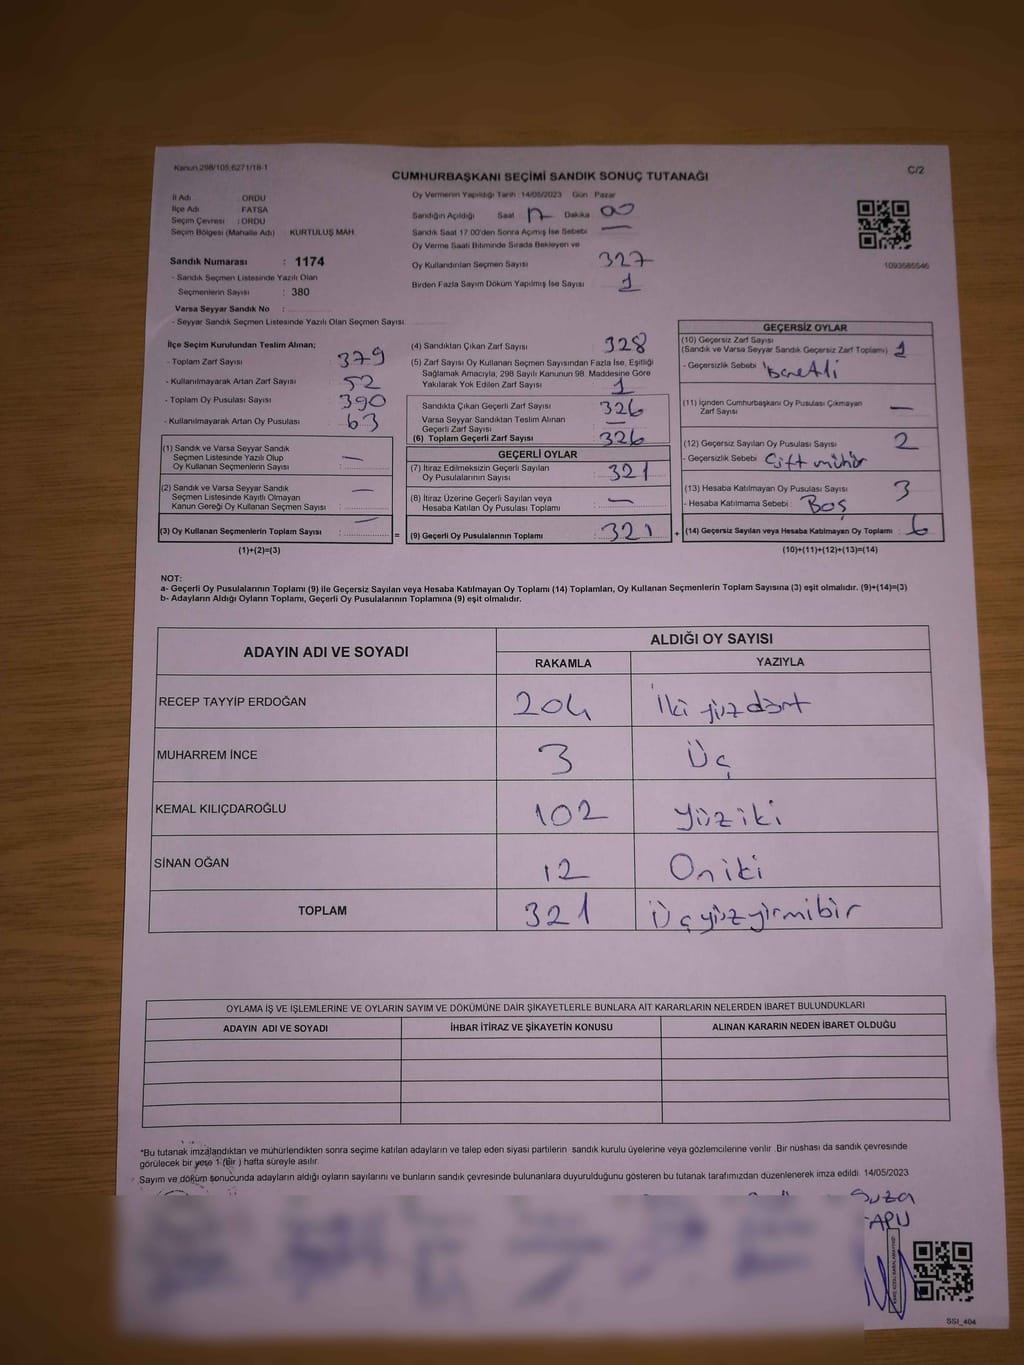 Kanun 298/105,6271/18-1
C/2
CUMHURBAŞKANI SEÇİMİ SANDIK SONUÇ TUTANAĞI
İl Adı : ORDU
İlçe Adı : FATSA
Seçim Çevresi : ORDU
Seçim Bölgesi (Mahalle Adı) : KURTULUŞ MAH.
Sandık Numarası : 1174
- Sandık Seçmen Listesinde Yazılı Olan
Seçmenlerin Sayısı : 380
Varsa Seyyar Sandık No :
- Seyyar Sandık Seçmen Listesinde Yazılı Olan Seçmen Sayısı:
Oy Vermenin Yapıldığı Tarih :14/05/2023 Gün : Pazar
Sandığın Açıldığı Saat 17 Dakika 00
Sandık Saat 17.00'den Sonra Açılmış İse Sebebi —
Oy Verme Saati Bitiminde Sırada Bekleyen ve
Oy Kullandırılan Seçmen Sayısı 327
Birden Fazla Sayım Döküm Yapılmış İse Sayısı 1
1093585546
İlçe Seçim Kurulundan Teslim Alınan;
- Toplam Zarf Sayısı : 379
- Kullanılmayarak Artan Zarf Sayısı : 52
- Toplam Oy Pusulası Sayısı : 390
- Kullanılmayarak Artan Oy Pusulası : 63
(1) Sandık ve Varsa Seyyar Sandık
Seçmen Listesinde Yazılı Olup
Oy Kullanan Seçmenlerin Sayısı : —
(2) Sandık ve Varsa Seyyar Sandık
Seçmen Listesinde Kayıtlı Olmayan
Kanun Gereği Oy Kullanan Seçmen Sayısı : —
(3) Oy Kullanan Seçmenlerin Toplam Sayısı : —
(1)+(2)=(3)
(4) Sandıktan Çıkan Zarf Sayısı : 328
(5) Zarf Sayısı Oy Kullanan Seçmen Sayısından Fazla İse, Eşitliği
Sağlamak Amacıyla, 298 Sayılı Kanunun 98. Maddesine Göre
Yakılarak Yok Edilen Zarf Sayısı : 1
Sandıkta Çıkan Geçerli Zarf Sayısı : 326
Varsa Seyyar Sandıktan Teslim Alınan
Geçerli Zarf Sayısı : —
(6) Toplam Geçerli Zarf Sayısı : 326
GEÇERLİ OYLAR
(7) İtiraz Edilmeksizin Geçerli Sayılan
Oy Pusulalarının Sayısı : 321
(8) İtiraz Üzerine Geçerli Sayılan veya
Hesaba Katılan Oy Pusulası Toplamı : —
= (9) Geçerli Oy Pusulalarının Toplamı : 321 +
GEÇERSİZ OYLAR
(10) Geçersiz Zarf Sayısı
(Sandık ve Varsa Seyyar Sandık Geçersiz Zarf Toplamı) : 1
- Geçersizlik Sebebi :
(11) İçinden Cumhurbaşkanı Oy Pusulası Çıkmayan
Zarf Sayısı : —
(12) Geçersiz Sayılan Oy Pusulası Sayısı : 2
- Geçersizlik Sebebi : Çift mühür
(13) Hesaba Katılmayan Oy Pusulası Sayısı : 3
- Hesaba Katılmama Sebebi : Boş
(14) Geçersiz Sayılan veya Hesaba Katılmayan Oy Toplamı : 6
(10)+(11)+(12)+(13)=(14)
NOT:
a- Geçerli Oy Pusulalarının Toplamı (9) ile Geçersiz Sayılan veya Hesaba Katılmayan Oy Toplamı (14) Toplamları, Oy Kullanan Seçmenlerin Toplam Sayısına (3) eşit olmalıdır. (9)+(14)=(3)
b- Adayların Aldığı Oyların Toplamı, Geçerli Oy Pusulalarının Toplamına (9) eşit olmalıdır.
ADAYIN ADI VE SOYADI
ALDIĞI OY SAYISI
RAKAMLA YAZIYLA
RECEP TAYYİP ERDOĞAN 204 İki yüz dört
MUHARREM İNCE 3 Üç
KEMAL KILIÇDAROĞLU 102 yüz iki
SİNAN OĞAN 12 On iki
TOPLAM 321 Üç yüz yirmi bir
OYLAMA İŞ VE İŞLEMLERİNE VE OYLARIN SAYIM VE DÖKÜMÜNE DAİR ŞİKAYETLERLE BUNLARA AİT KARARLARIN NELERDEN İBARET BULUNDUKLARI
ADAYIN ADI VE SOYADI İHBAR İTİRAZ VE ŞİKAYETİN KONUSU ALINAN KARARIN NEDEN İBARET OLDUĞU
*Bu tutanak imzalandıktan ve mühürlendikten sonra seçime katılan adayların ve talep eden siyasi partilerin sandık kurulu üyelerine veya gözlemcilerine verilir. Bir nüshası da sandık çevresinde
görülecek bir yere 1 (Bir ) hafta süreyle asılır.
Sayım ve döküm sonucunda adayların aldığı oyların sayılarını ve bunların sandık çevresinde bulunanlara duyurulduğunu gösteren bu tutanak tarafımızdan düzenlenerek imza edildi. 14/05/2023
SSİ_404